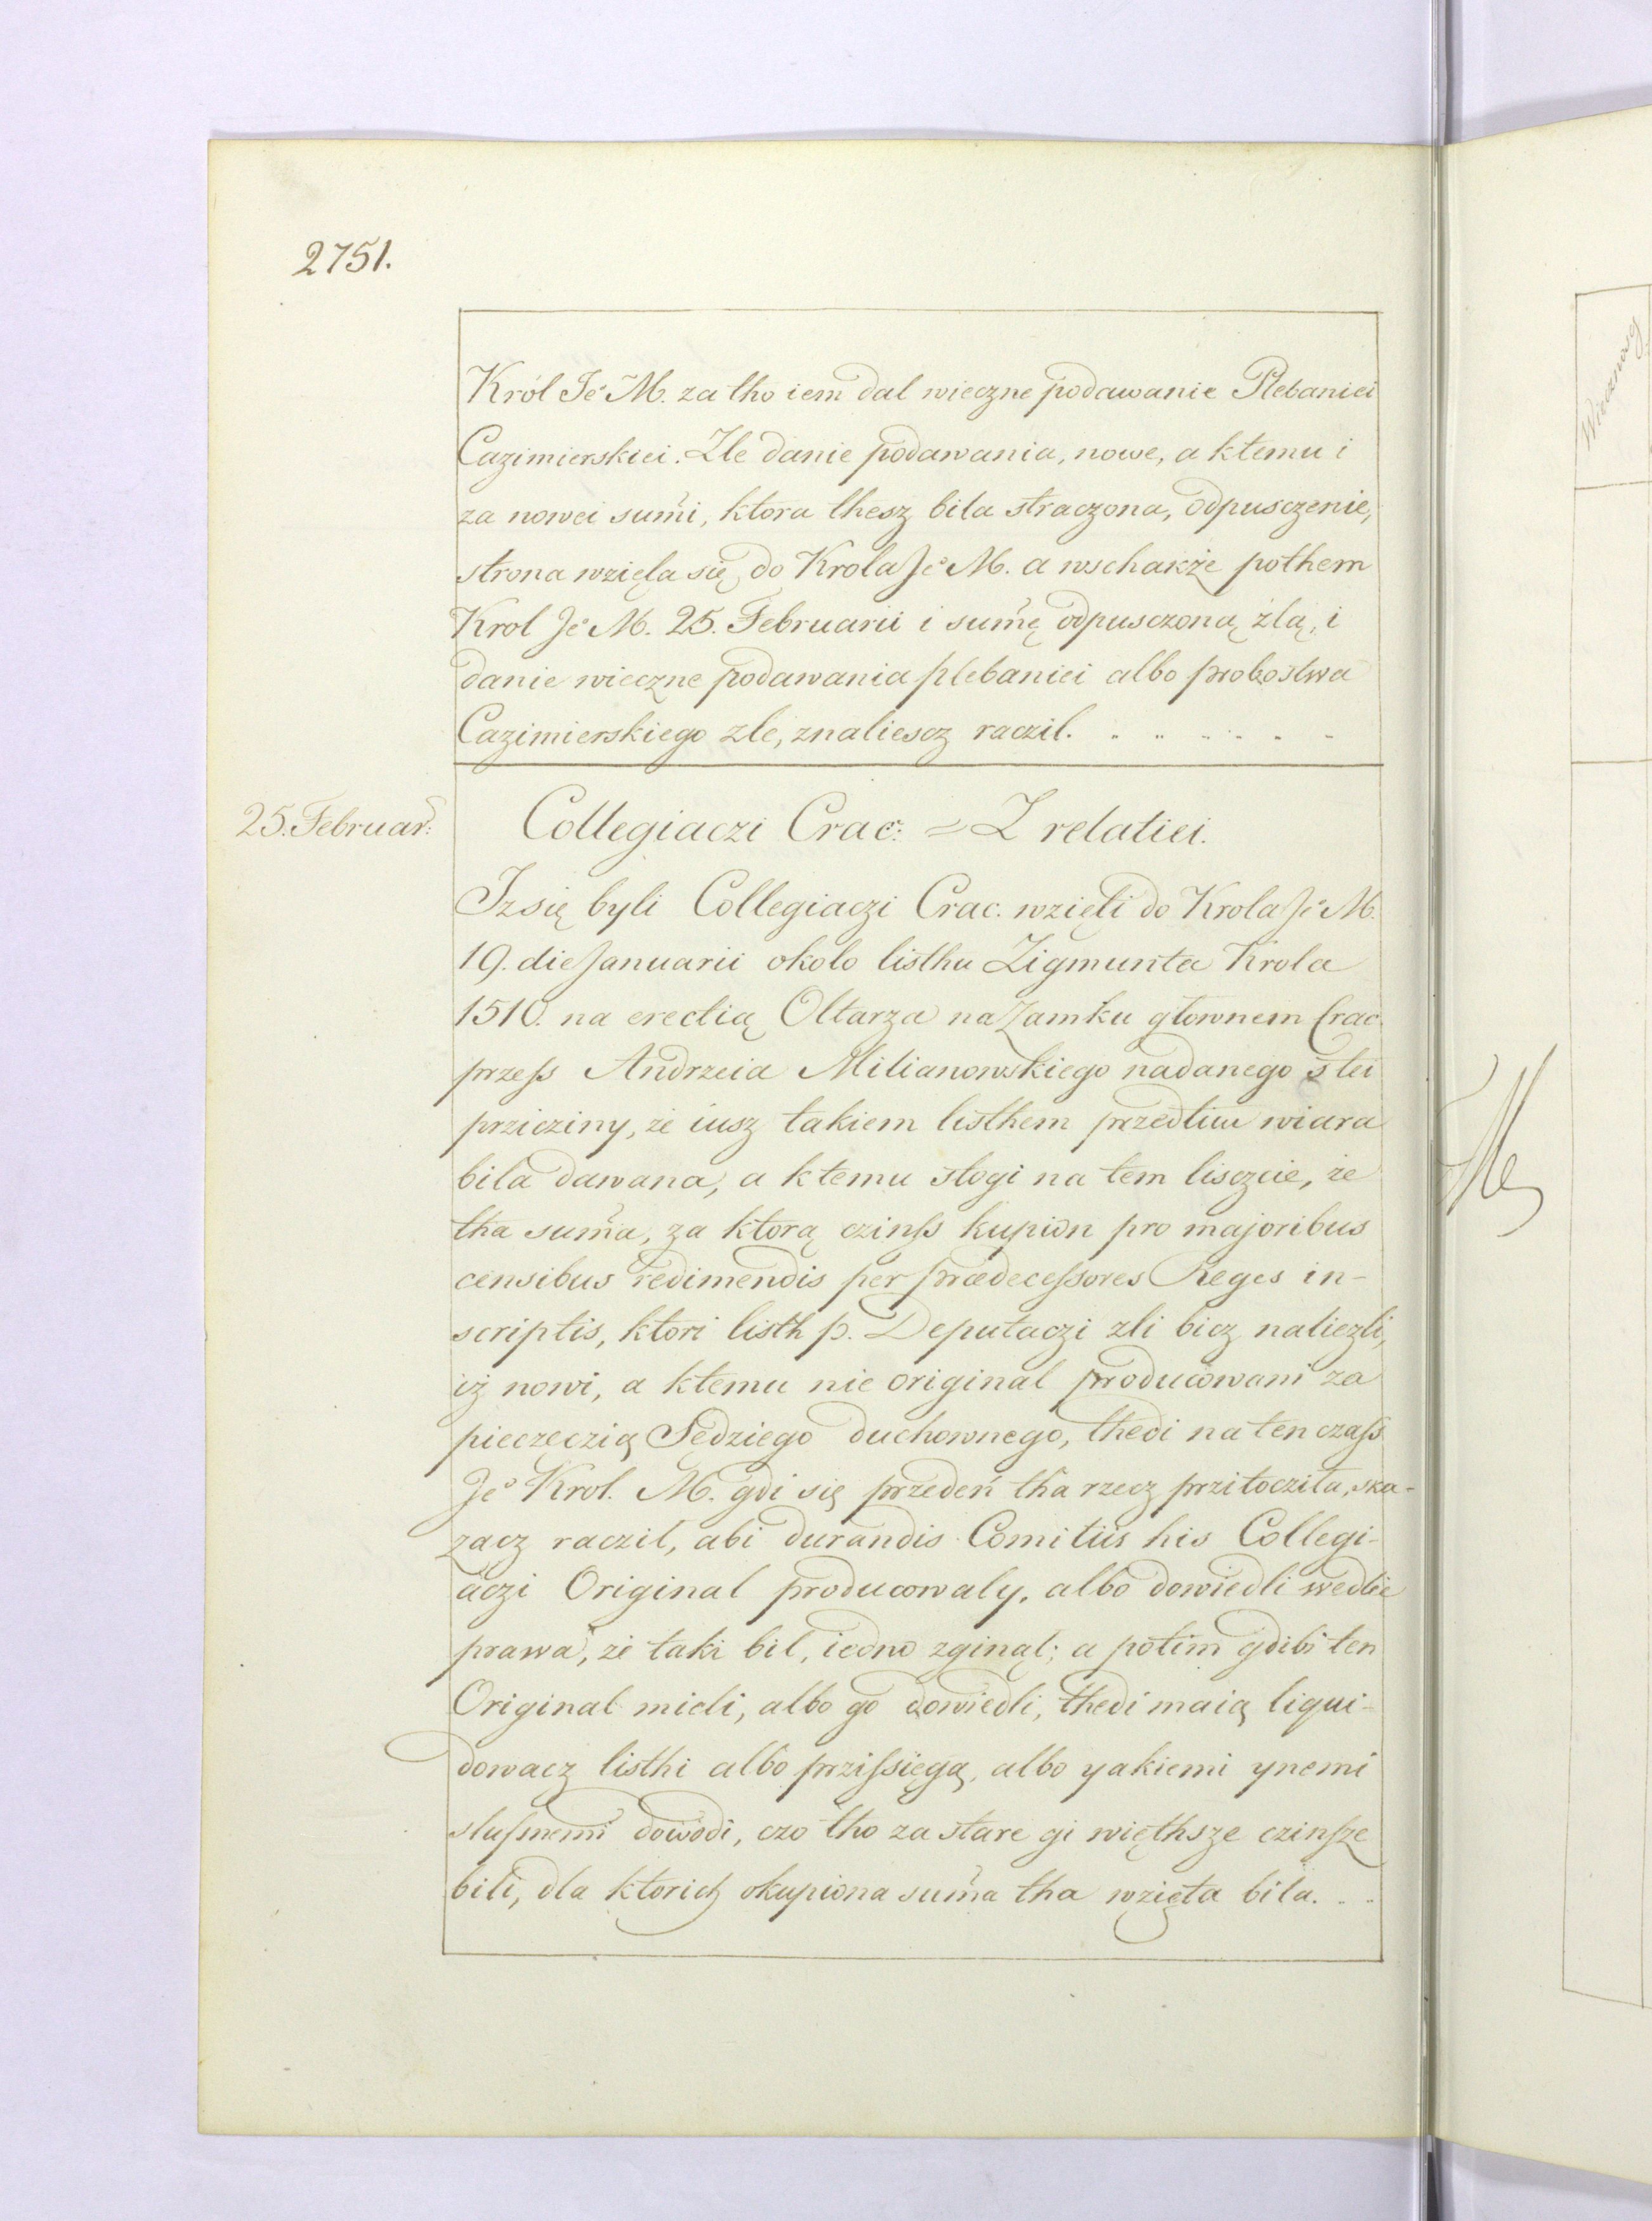 2751.
Król Jeº M. za tho iem dal wieczne podawanie Plebaniei
Cazimierskiei. Zle danie podawania, nowe, a ktemu i
za nowei sumi, ktora thesz bila straczona, odpusczenie,
strona wzięla się do Krola Jeº M. a wschakże pothem
Krol Jeº M. 25. Februarii i sumę odpusczoną zlą, i
danie wieczne podawania plebaniei albo probostwa
Cazimierskiego zle, znaliescz raczil. . . . . . . .
25. Februar:
Collegiaczi Crac: = Z relatiei.
Iz się byli Collegiaczi Crac. wzięli do Krola Jeº M.
19. die Januarii okolo listhu Zigmunta Krola
1510. na erectią Oltarza na Zamku głownem Crac.
przess Andrzeia Milianowskiego nadanego s tei
przicziny, że iusz takiem listhem przedtim wiara
bila dawana, a ktemu slogi na tem lisczcie, że
tha suma, za ktorą czinss kupion pro majoribus
censibus redimendis per prædecessores Reges in-
scriptis, ktori listh p. Deputaczi zli bicz naliezli,
iż nowi, a ktemu nie original producowani za
pieczeczią Sędziego duchownego, thedi na ten czass
Jeº Krol. M. gdi się przedeń tha rzecz przitoczila, ska-
zacz raczil, abi durandis Comitiis his Collegi-
aczi Original producowaly, albo dowiedli wedlie
prawa, że taki bil, iedno zginąl; a potim gdibi ten
Original mieli, albo go dowiedli, thedi maią liqui-
dowacz listhi albo przissięgą, albo yakiemi ynemi
slusznemi dowodi, czo tho za stare gi więthsze czinsze
bili, dla ktorich okupiona suma tha wzięta bila. . .
Wieczmosz